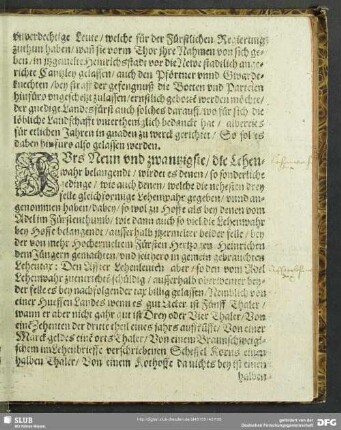 vnverdechtige Leute / welche für der Fürstlichen Regierung
zuthun haben / wañ sie vorm Thor ihre Nahmen von sich ge-
ben / in ytzgemelte Heinrichsstadt vor die Newe stadtlich ange-
richte Cantzley gelassen / auch den Pförtner vnnd Gwarde-
knechten / bey straff der gefengnuß die Botten vnd Parteien
hinfüro vngescheizt zulassen / ernstlich geboten werden möchte /
der gnedige Landesfürst auch solches darauff / wo für sich die
löbliche Landschafft vnterthenglich bedanckt hat / albereit
für etlichen Jahren in gnaden zu werck gerichtet / So sol es
dabey hinfüro also gelassen werden.
FVrs Neun vnd zwantzigste / die Lehen-
wahr belangendt / wirdet es denen / so sonderliche
gedinge / wie auch denen / welche die nehesten drey
felle gleichformige Lehenwahr gegeben / vnnd an-
genommen haben / dabey / so wol zu Hoffe als bey denen vom
Adel im Fürstenthumb / wie dann auch so viel die Lehenwahr
bey Hoffe belangende / ausserhalb itzermelter beider felle / bey
der von mehr Hochermeltem Fürsten Hertzogen Heinrichen
dem Jüngern gemachten / vnd seithero in gemein gebrauchten
Lehentax: Den Affter Lehenleuten aber / so den vom Adel
Lehenwahr zuentrichten schüldig / ausserhalb oberwenter bey-
der felle es bey nachfolgender tax billig gelassen / Nemblich von
einer Hueffen Landes wenn es gut acker ist Fünff Thaler /
wann er aber nicht gahr gut ist Drey oder Vier Thaler / Von
eim Zehenten der dritte theil eines jahrs auffkünffte / Von einer
Marck geldes eine orts Thaler / Von einem Braunschweigi-
schem im Lehenbrieffe verschriebenen Scheffel Korns einen
halben Thaler / Von einem Kothoffe da nichts bey ist einen
halben
SLUB
Wir führen Wissen.
gefördert von der
Deutschen Forschungsgemeinschaft
DFG